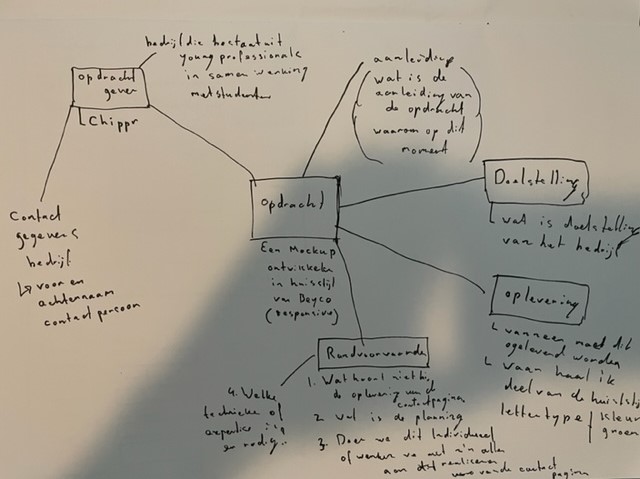 bedrijf die bestaat uit
young professionals
in samenwerking
met studenten
opdracht
gever
Chippr
Contact
gegevens
bedrijf
voor en
achternaam
contactpersoon
aanleiding
wat is de
aanleiding van
de opdracht
waarom op dit
moment
opdracht
Een Mockup
ontwikkelen
in huisstijl
van
(responsive)
Doelstelling
wat is doelstelling
van het bedrijf
oplevering
wanneer moet dit
opgeleverd worden
waar haal ik
deel van de huisstijl
lettertype / kleur
groen
Randvoorwaarden
1. Wat hoort niet bij
de oplevering van de
contactpagina
2. wat is de planning
3. Doen we dit Individueel
of werken we met z'n allen
aan dit realiseren
van de contact
pagina
4. Welke
technieken of
expertise is
er nodig